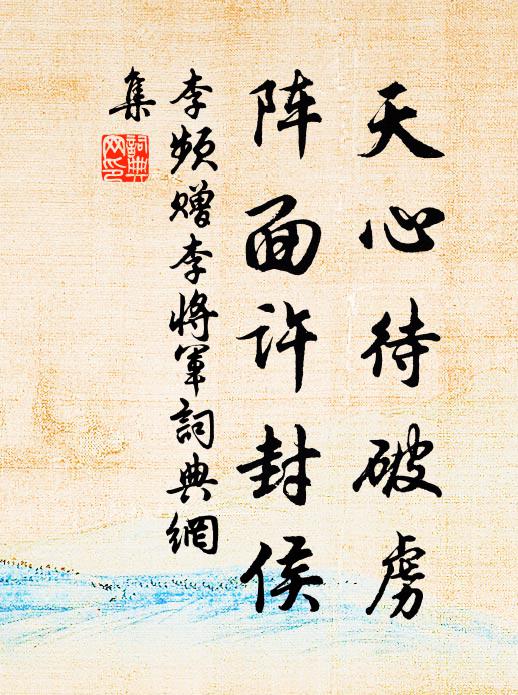 天心待破虏
阵面许封侯
李频赠李将军詞典網
集
詞典
网印